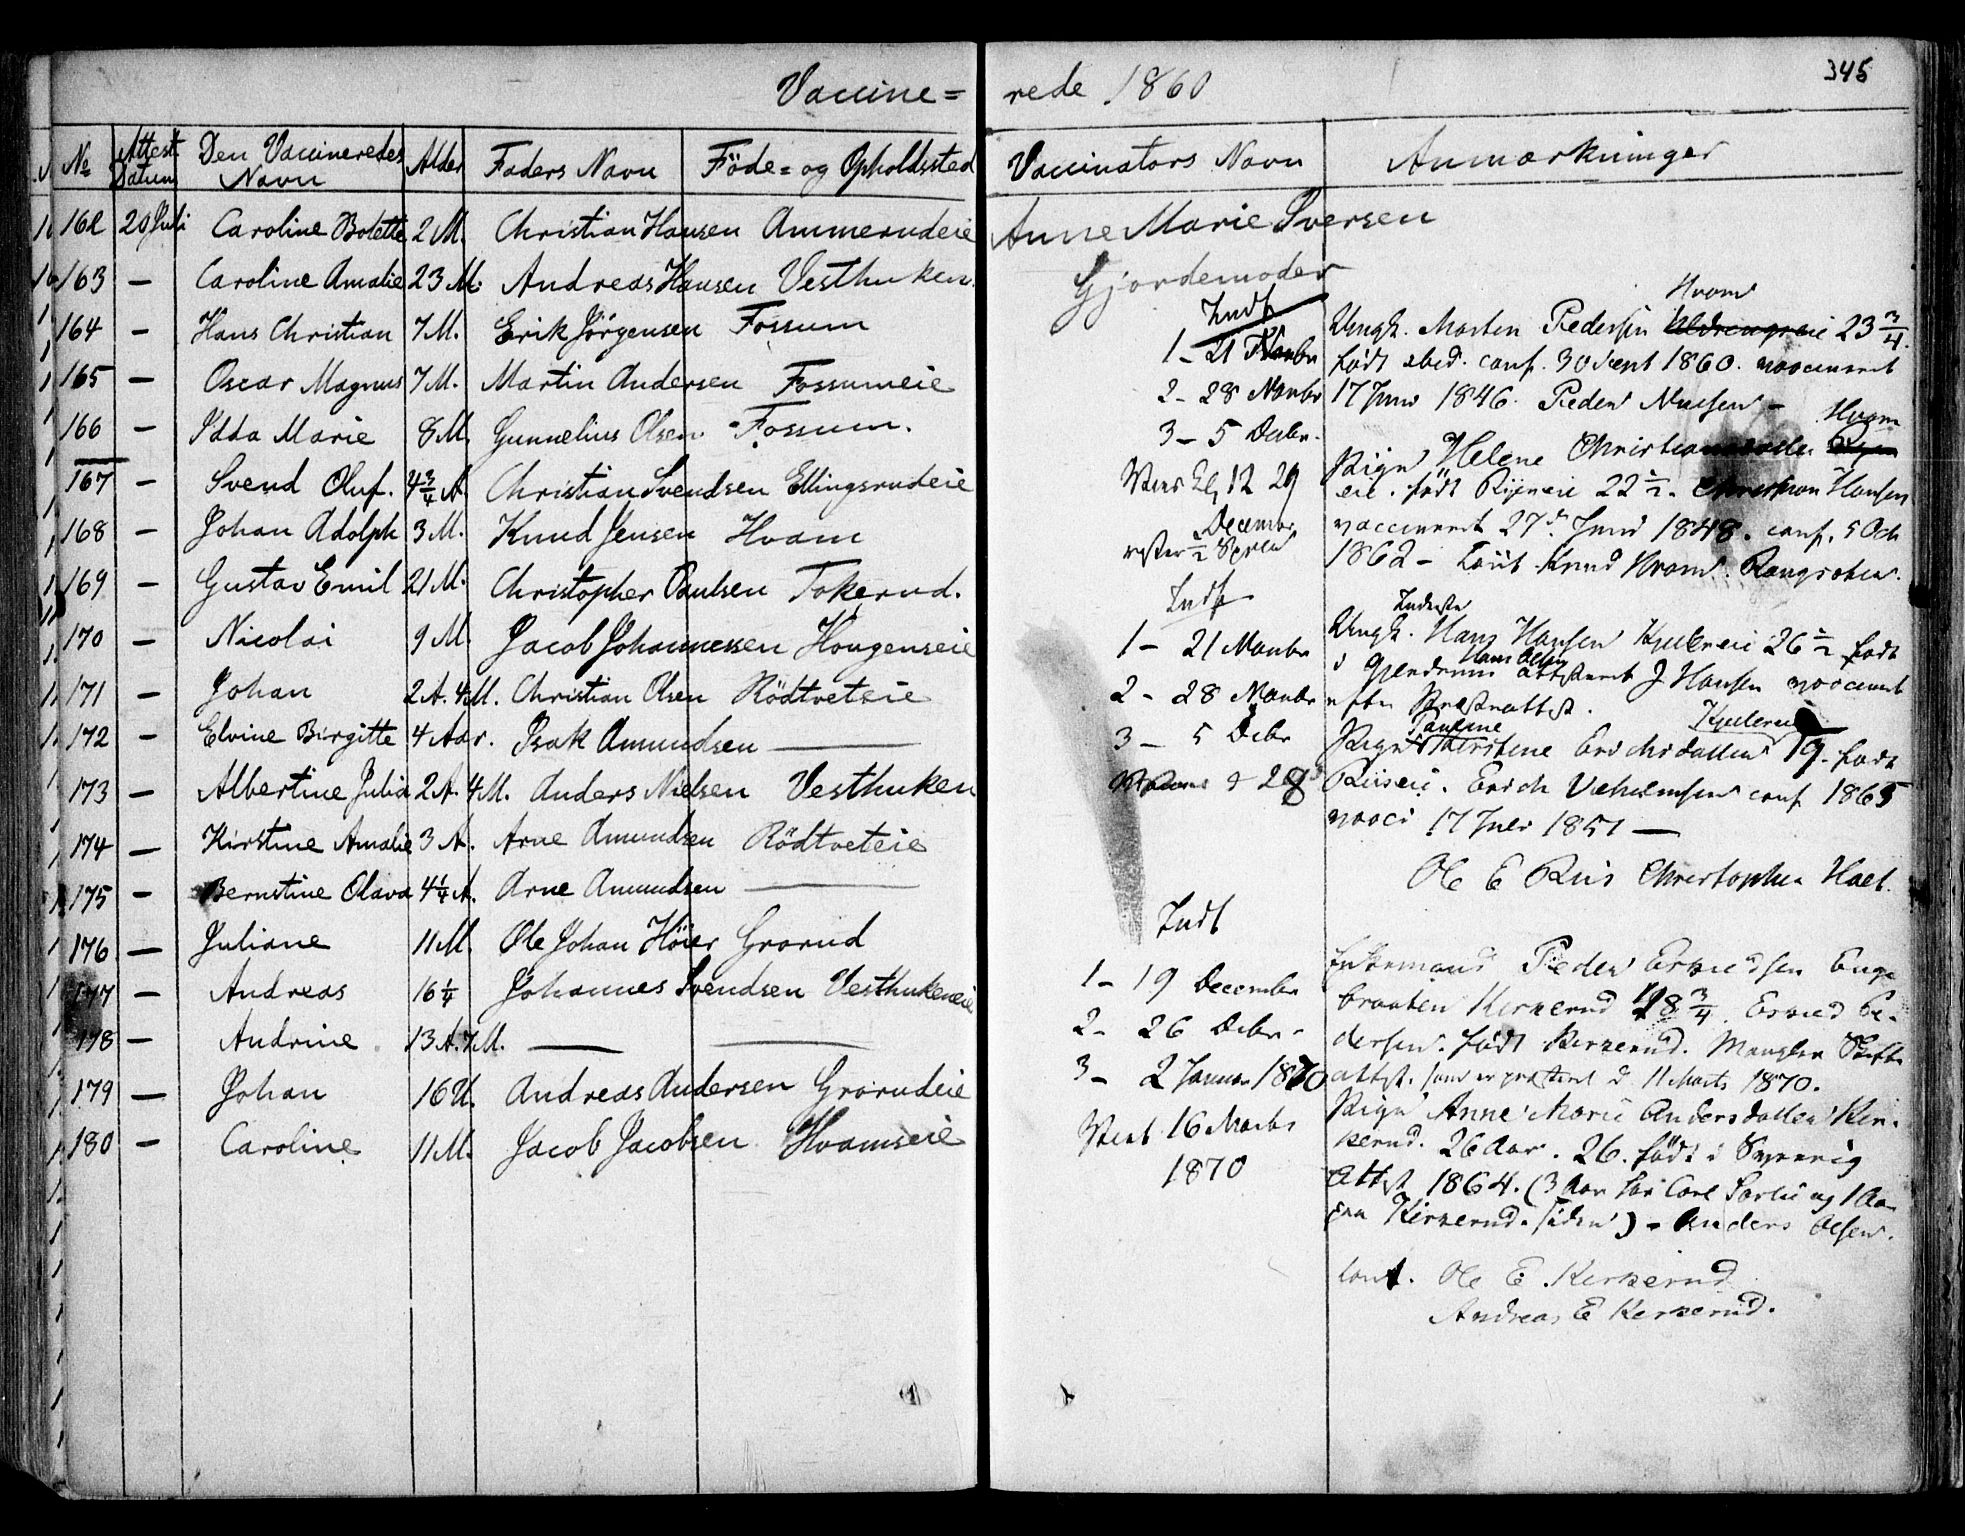 345
Vaccine= rede 1860
№ Attest Datum Den Vaccineredes Navn Alder Faders Navn Föde= og Opholdssted Vaccinators Navn Anmærkninger
162 20 Juli Caroline Bolette 2 M. Christian Hansen Ammerudeie Anne Marie Iversen
163 — Caroline Amalie 23 M. Andreas Hansen Vesthuken Gjordemoder
164 — Hans Christian 7 M. Erik Jörgensen Fossum
165 — Oscar Magnus 7 M. Martin Andersen Fossumeie
166 — Idda Marie 8 M. Gunnelius Olsen Fossum.
167 — Svend Oluf. 4 3/4 A. Christian Svendsen Ellingsrudeie
168 — Johan Adolph 3 M. Knud Jensen Hvam
169 — Gustav Emil 21 M. Christopher Paulsen Tokerud.
170 — Nicolai 9 M. Jacob Johannessen Hougenseie
171 — Johan 2 A. 4 M. Christian Olsen Rödtveteie
172 — Elvine Birgitte 4 Aar. Isak Amundsen —
173 — Albertine Julia 2 A. 4 M. Anders Nielsen Vesthuken
174 — Kirstine Amalie 3 A. Arne Amundsen Rödtveteie
175 — Bernstine Olava 4 1/4 A. Arne Amundsen —
176 — Juliane 11 M. Ole Johan Höier Grorud
177 — Andreas 16 1/4 Johannes Svendsen Vesthukeneie
178 — Andrine 13 A. 7 M. — —
179 — Johan 16 U. Andreas Andersen Grorudeie
180 — Caroline 11 M. Jacob Jacobsen Hvamseie
Indf
1 – 21 Novbr
2 – 28 Novbr
3 – 5 Decbr.
12 29
December
Indf
1 – 21 Novbr
2 – 28 Novbr
3 – 5 Debr
28
Indf
1 – 19 December
2 – 26 Debr.
3 – 2 Januar 1870
Viet 16 Marts
1870
Hvam
Ungk. Morten Pedersen 23 3/4.
født ibid. conf. 30 Sept 1860. vaccineret
17 Juni 1846. Peder Nielsen –
Hvam
Pige Helene Christiansdatter
eie. født 22 1/2. Christian Hansen
vaccineret 27de Juni 1848. conf. 5 Oct
1862 – Knud Hvam.
Inderste
Ungk. Hans Hansen 26 1/2 født
i Gjerdrum Hans Olsen J Hansen vaccineret
efter
Pauline
Pige Kirstine 19. født
Riiseie. Erich conf 1865
vacci 17 Juli 1851 —
Ole E Riis Christopher
Enkemand Peder Enge
braaten Kirkerud 3/4. Pe-
dersen. født Kirkerud. Mangler Skifte
attest. 11 Marts 1870.
Pige Anne Marie Andersdatter Kir-
kerud. 26 Aar. 26. født i Sverrig
Attest 1864. (3 Aar Carl og 1 Aar
paa Kirkerud. siden) – Anders Olsen.
Ole E. Kirkerud
Andreas E Kirkerud.